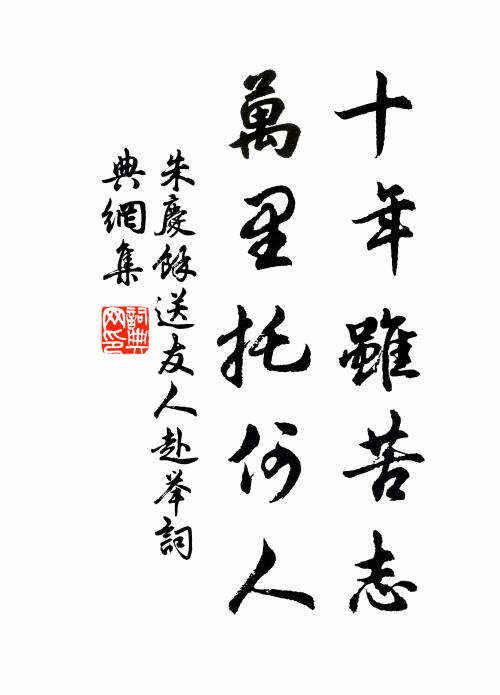 十年雖苦志
萬里托何人
朱慶餘送友人赴举詞
典網集
詞典网印